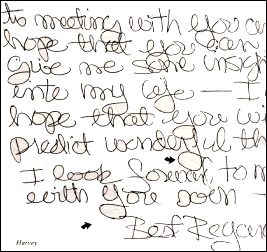 to meeting with you an
hope that you can
give me some insigh
into my life — I
hope that you wi
predict wonderful th
I look forward to m
with you soon —
Best Regar
Harvey